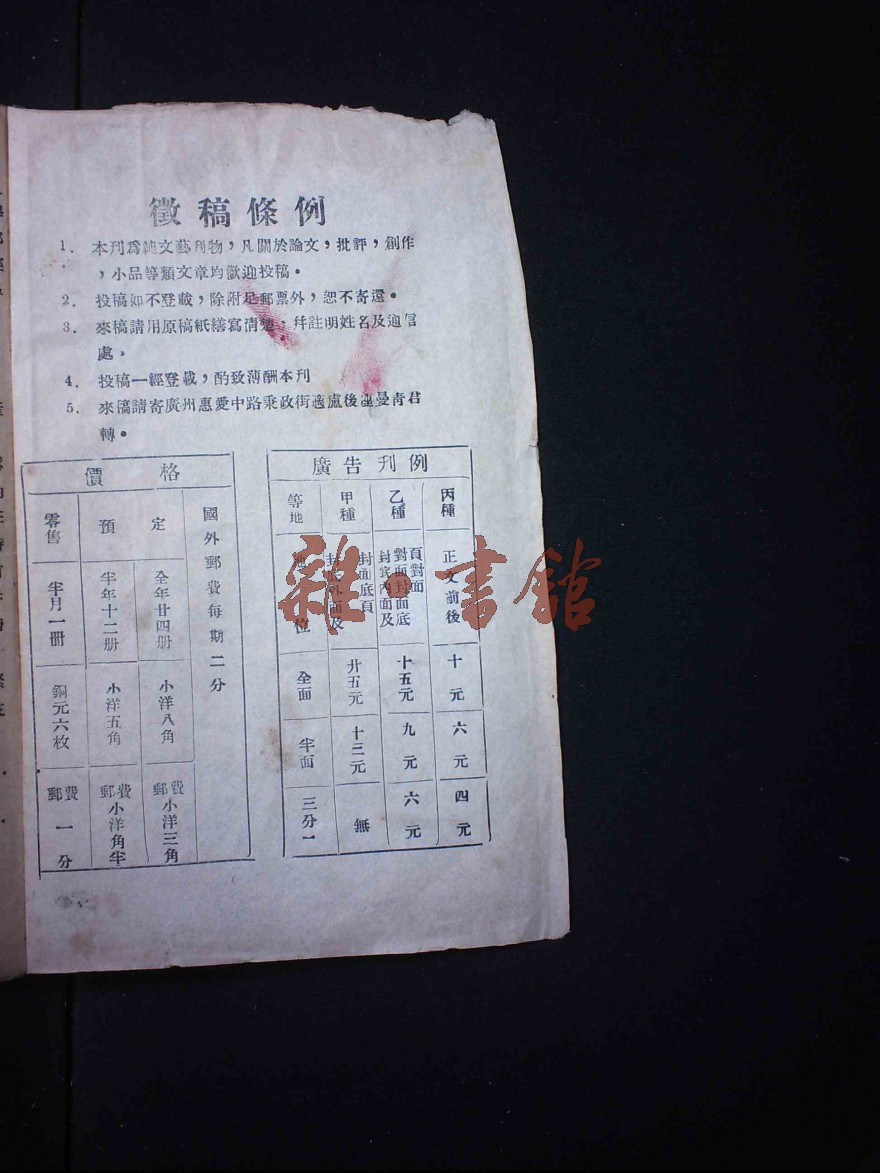 徵稿條例
1. 本刊爲純文藝刊物，凡關於論文，批評，創作
，小品等類文章均歡迎投稿。
2. 投稿如不登載，除附足郵票外，恕不寄還。
3. 來稿請用原稿紙繕寫清楚，幷註明姓名及通信
處。
4. 投稿一經登載，酌致薄酬本刊
5. 來稿請寄廣州惠愛中路秉政街適廬後座曼青君
轉。
廣告刊例
等地 甲種 乙種 丙種
位
封面底頁
封底外面及
頁對面
對面封面底
封底內面及
正文前後
全面 廾五元 十五元 十元
半面 十三元 九元 六元
三分一 無 六元 四元
價格
零售 預定 國外郵費每期二分
半月一冊 半年十二册 全年廿四册
銅元六枚 小洋五角 小洋八角
郵費一分 郵費小洋角半 郵費小洋三角
雜·書館